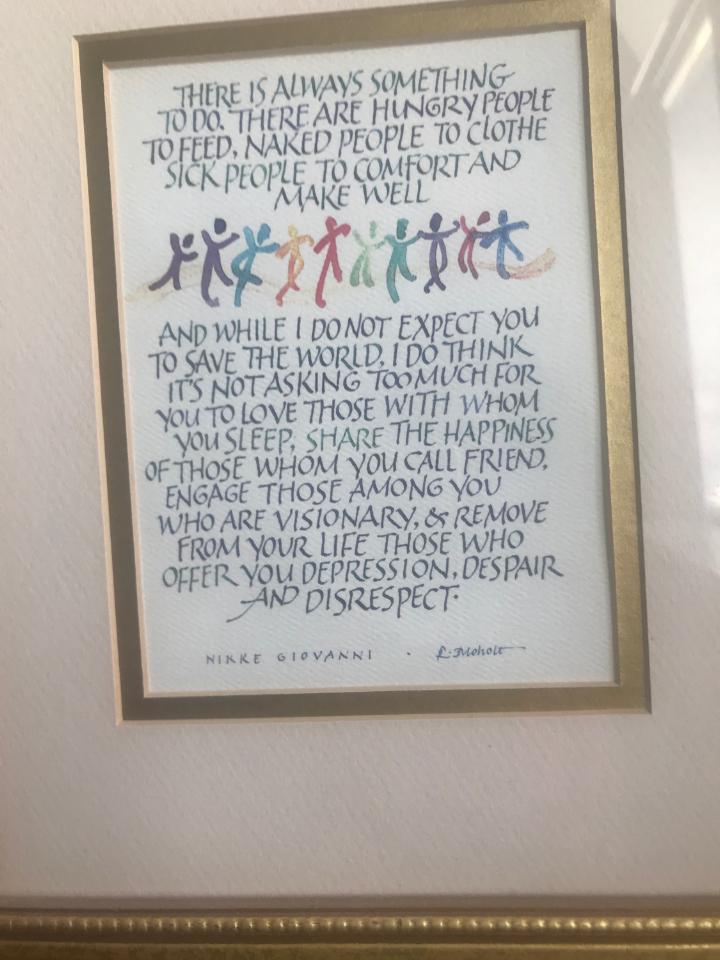 THERE IS ALWAYS SOMETHING
TO DO. THERE ARE HUNGRY PEOPLE
TO FEED, NAKED PEOPLE TO CLOTHE
SICK PEOPLE TO COMFORT AND
MAKE WELL
AND WHILE I DO NOT EXPECT YOU
TO SAVE THE WORLD, I DO THINK
IT'S NOT ASKING TOO MUCH FOR
YOU TO LOVE THOSE WITH WHOM
YOU SLEEP, SHARE THE HAPPINESS
OF THOSE WHOM YOU CALL FRIEND,
ENGAGE THOSE AMONG YOU
WHO ARE VISIONARY, & REMOVE
FROM YOUR LIFE THOSE WHO
OFFER YOU DEPRESSION, DESPAIR
AND DISRESPECT.
NIKKE GIOVANNI · R. Moholt